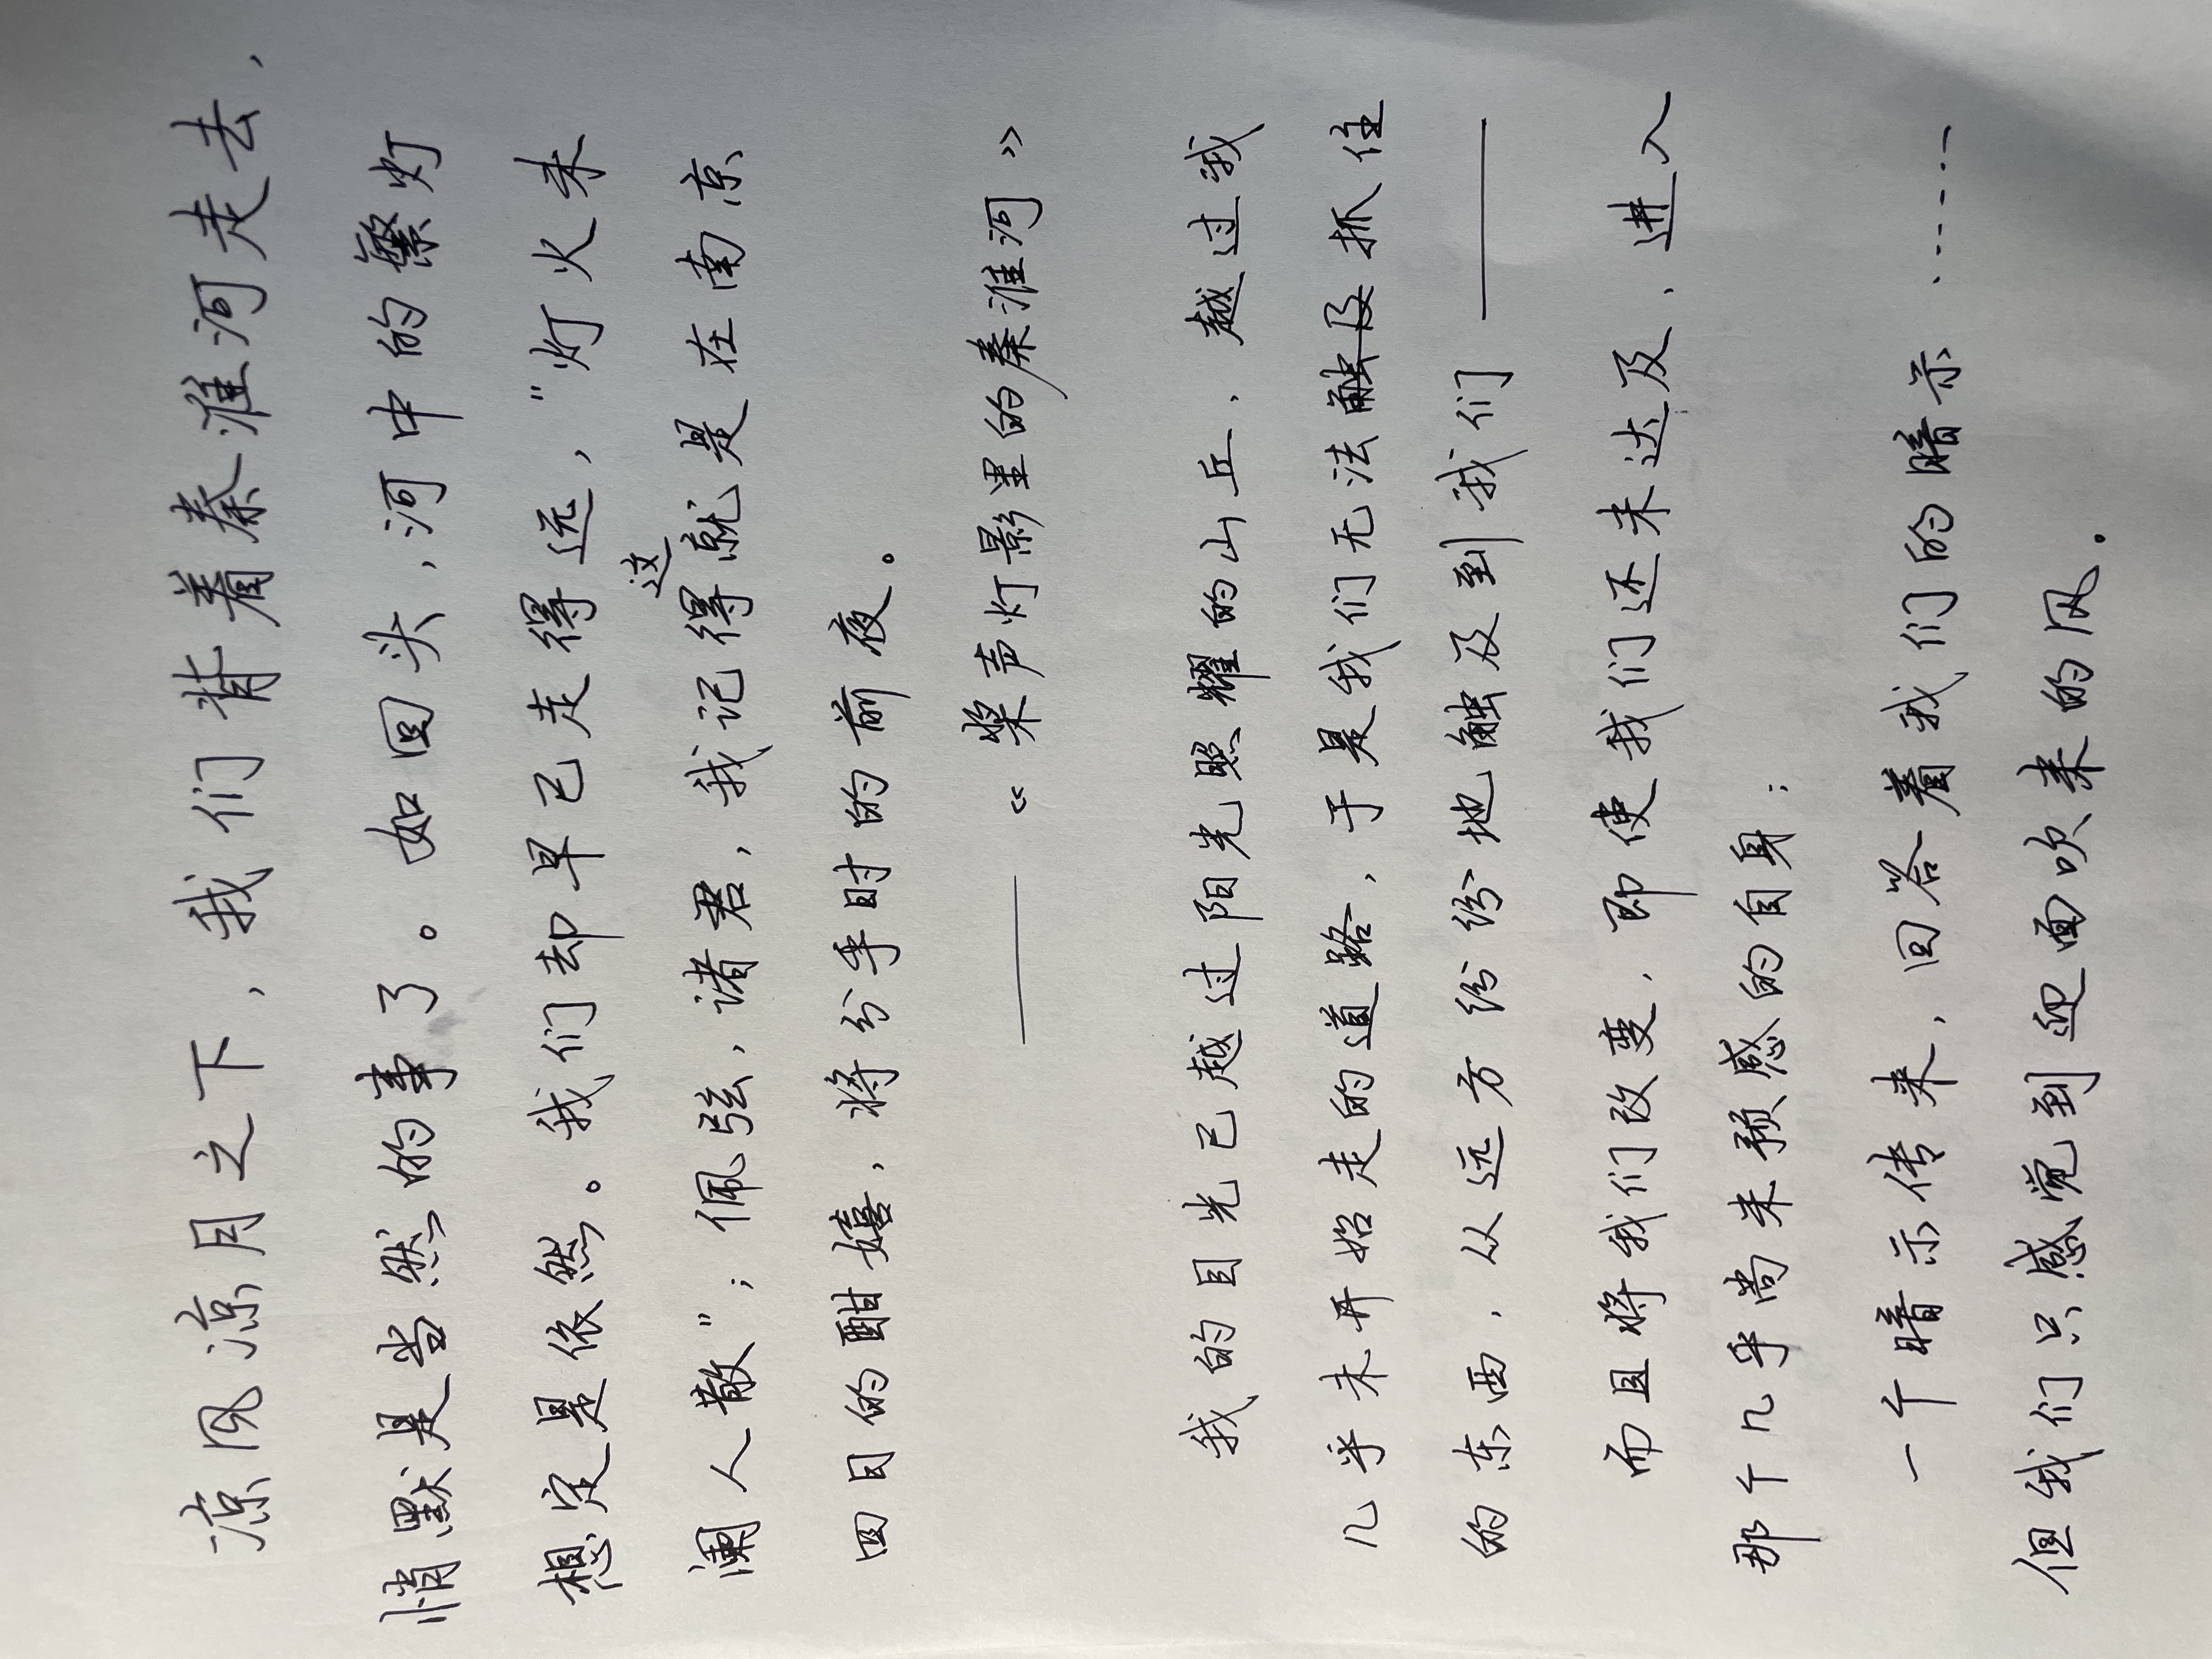 凉风凉月之下，我们背着秦淮河走去，
悄默是当然的事了。如回头，河中的繁灯
想定是依然。我们却早已走得远，"灯火未
阑人散"；佩弦，诸君，我记得这就是在南京
四日的酣嬉，将分手时的前夜。
——《桨声灯影里的秦淮河》
我的目光已越过阳光照耀的山丘，越过我
几乎未开始走的道路，于是我们无法触及抓住
的东西，从远方纷纷地触及到我们——
而且将我们改变，即使我们还未达及，进入
那个几乎尚未预感的自身；
一个暗示传来，回答着我们的暗示……
但我们只感觉到迎面吹来的风。